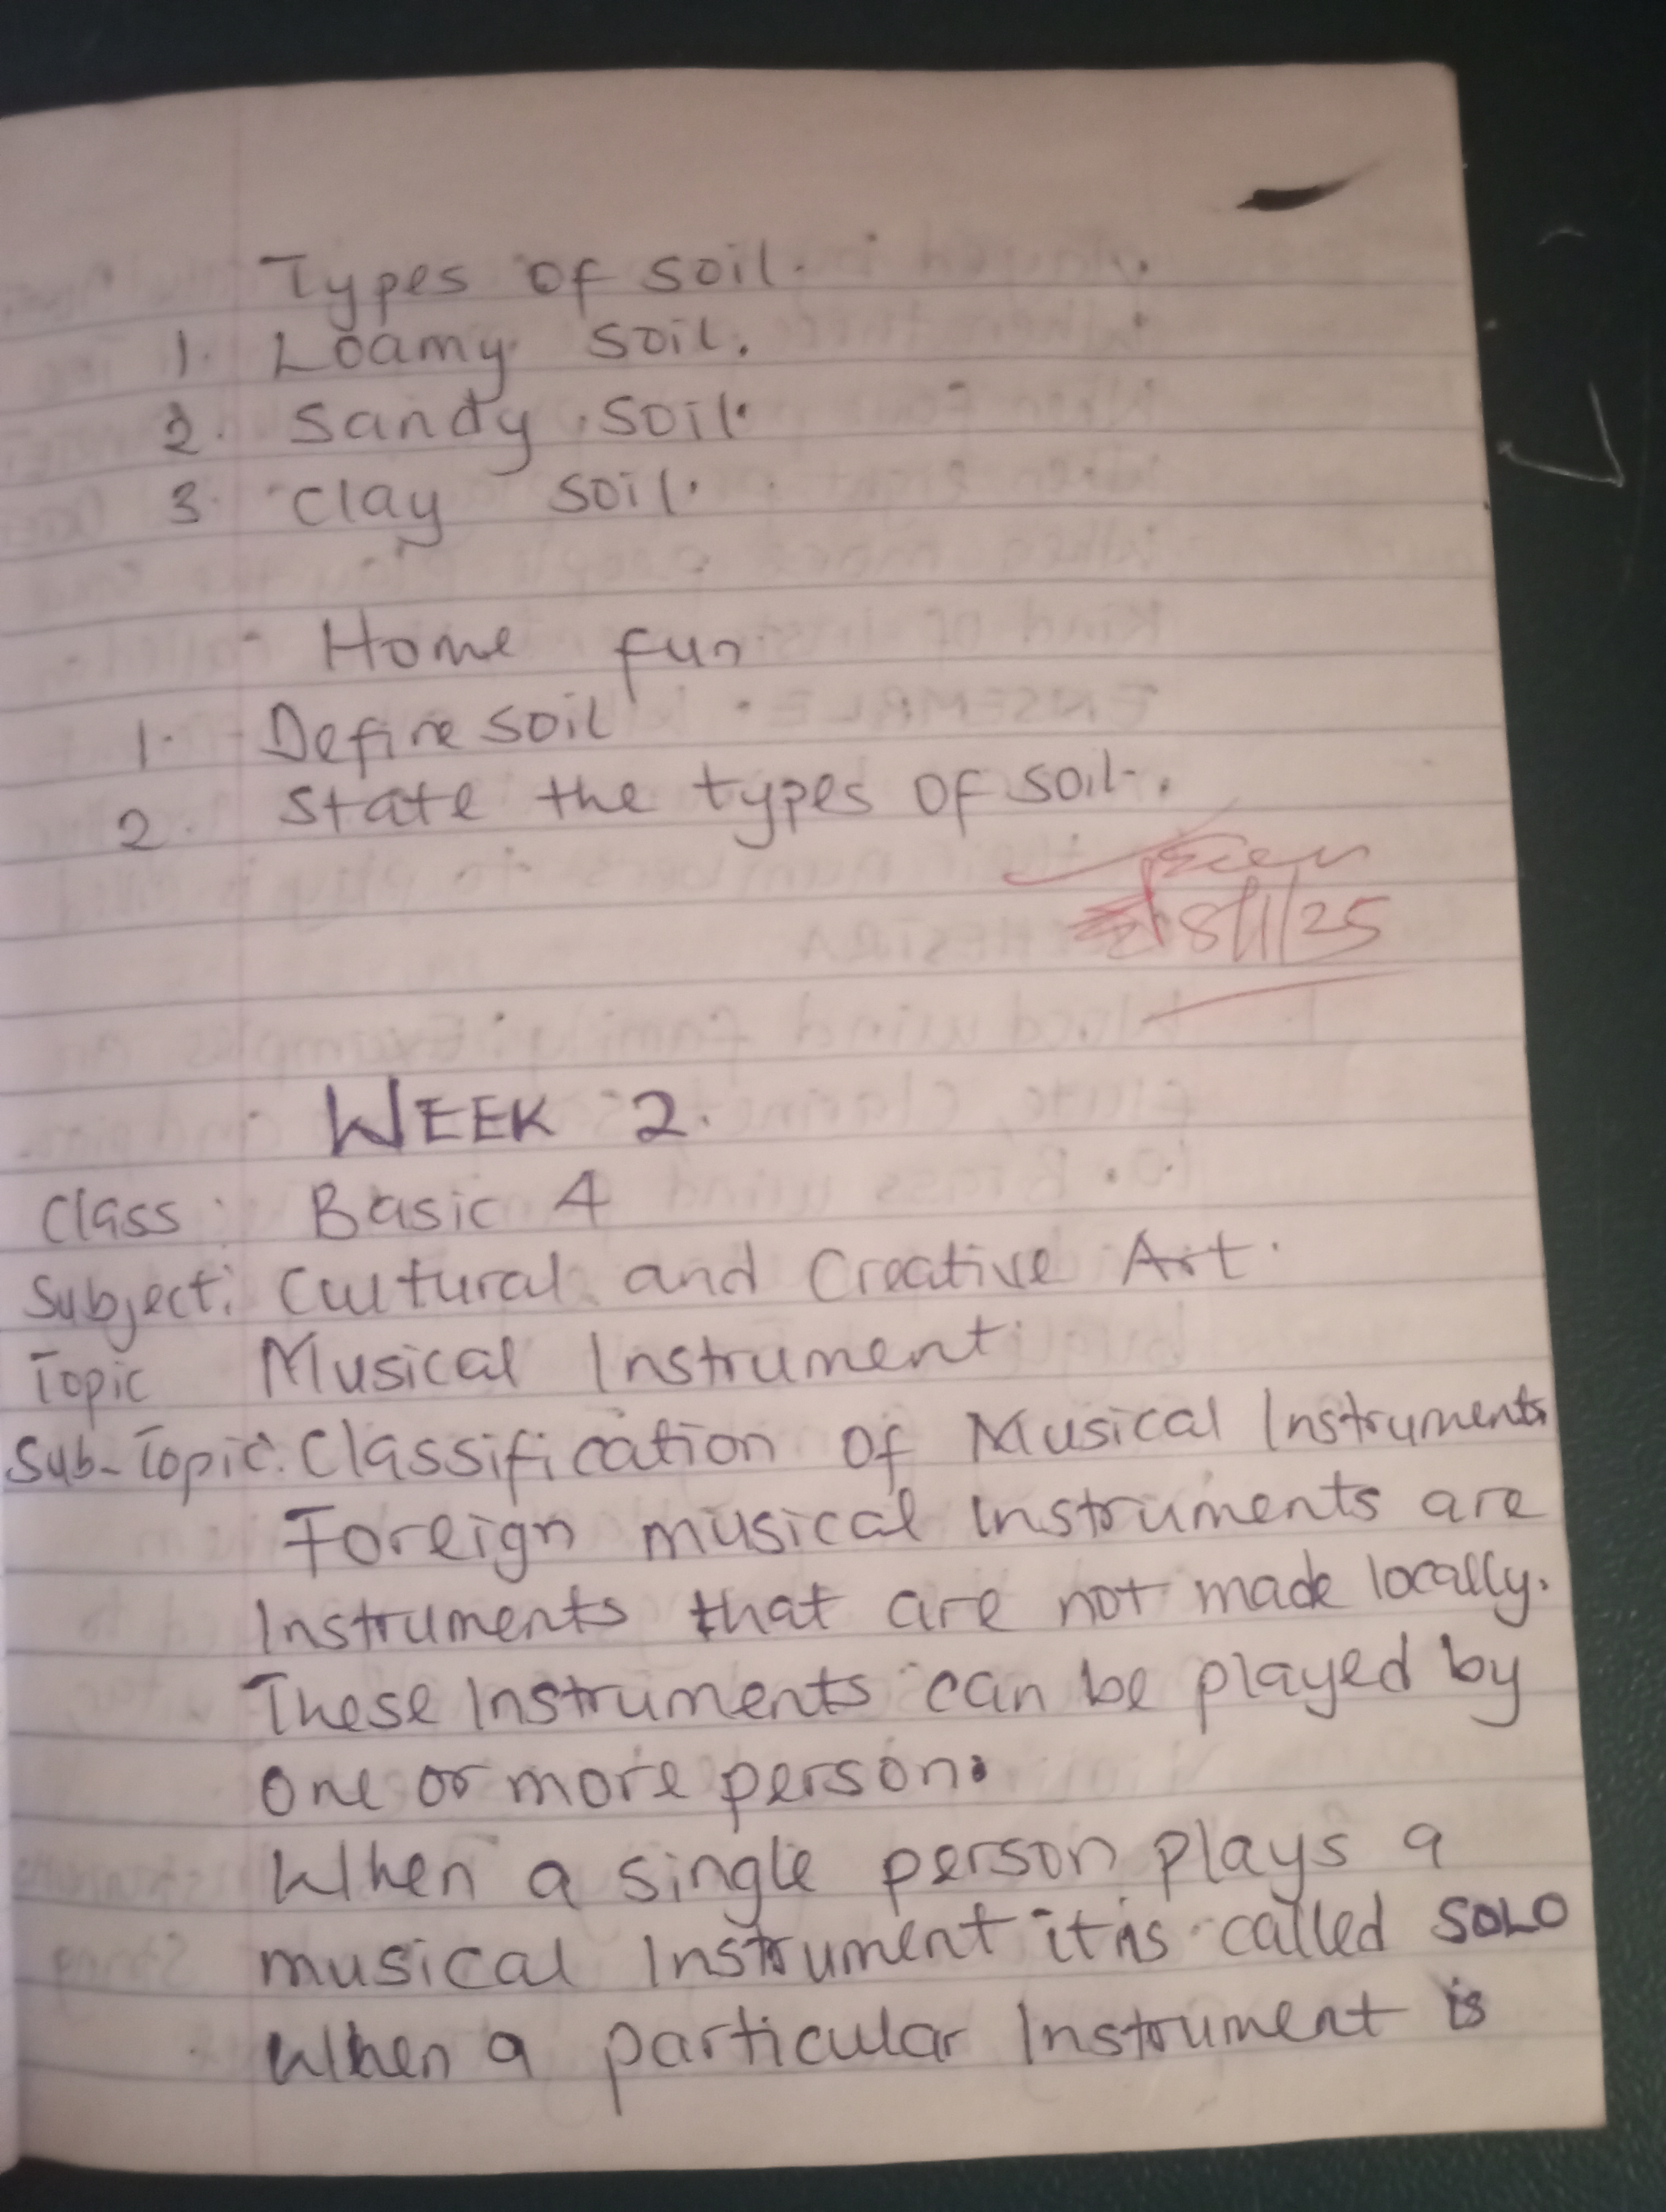 Types of soil.
1. Loamy soil.
2. Sandy soil.
3. clay soil.
Home fun
1. Define soil
2 State the types of soil.
8/1/25
WEEK 2.
Class: Basic 4
Subject: Cultural and Creative Art.
Topic Musical Instrument
Sub-Topic: Classification of Musical Instruments
Foreign musical instruments are
Instruments that are not made locally.
These Instruments can be played by
one or more person.
When a single person plays a
musical Instrument it is called SOLO
When a particular Instrument is